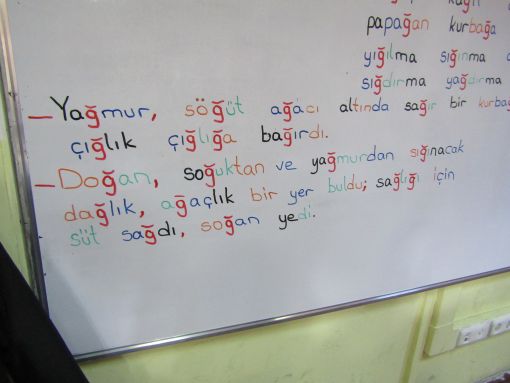 papağan kurbağa
yığılma sığınma
sığdırma yağdırma
— Yağmur, söğüt ağacı altında sağır bir
çığlık çığlığa bağırdı.
— Doğan, soğuktan ve yağmurdan sığınacak
dağlık, ağaçlık bir yer buldu; sağlığı için
süt sağdı, soğan yedi.